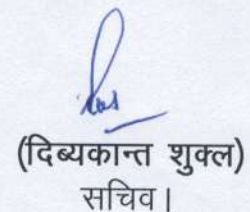 (दिब्यकान्त शुक्ल)
सचिव।